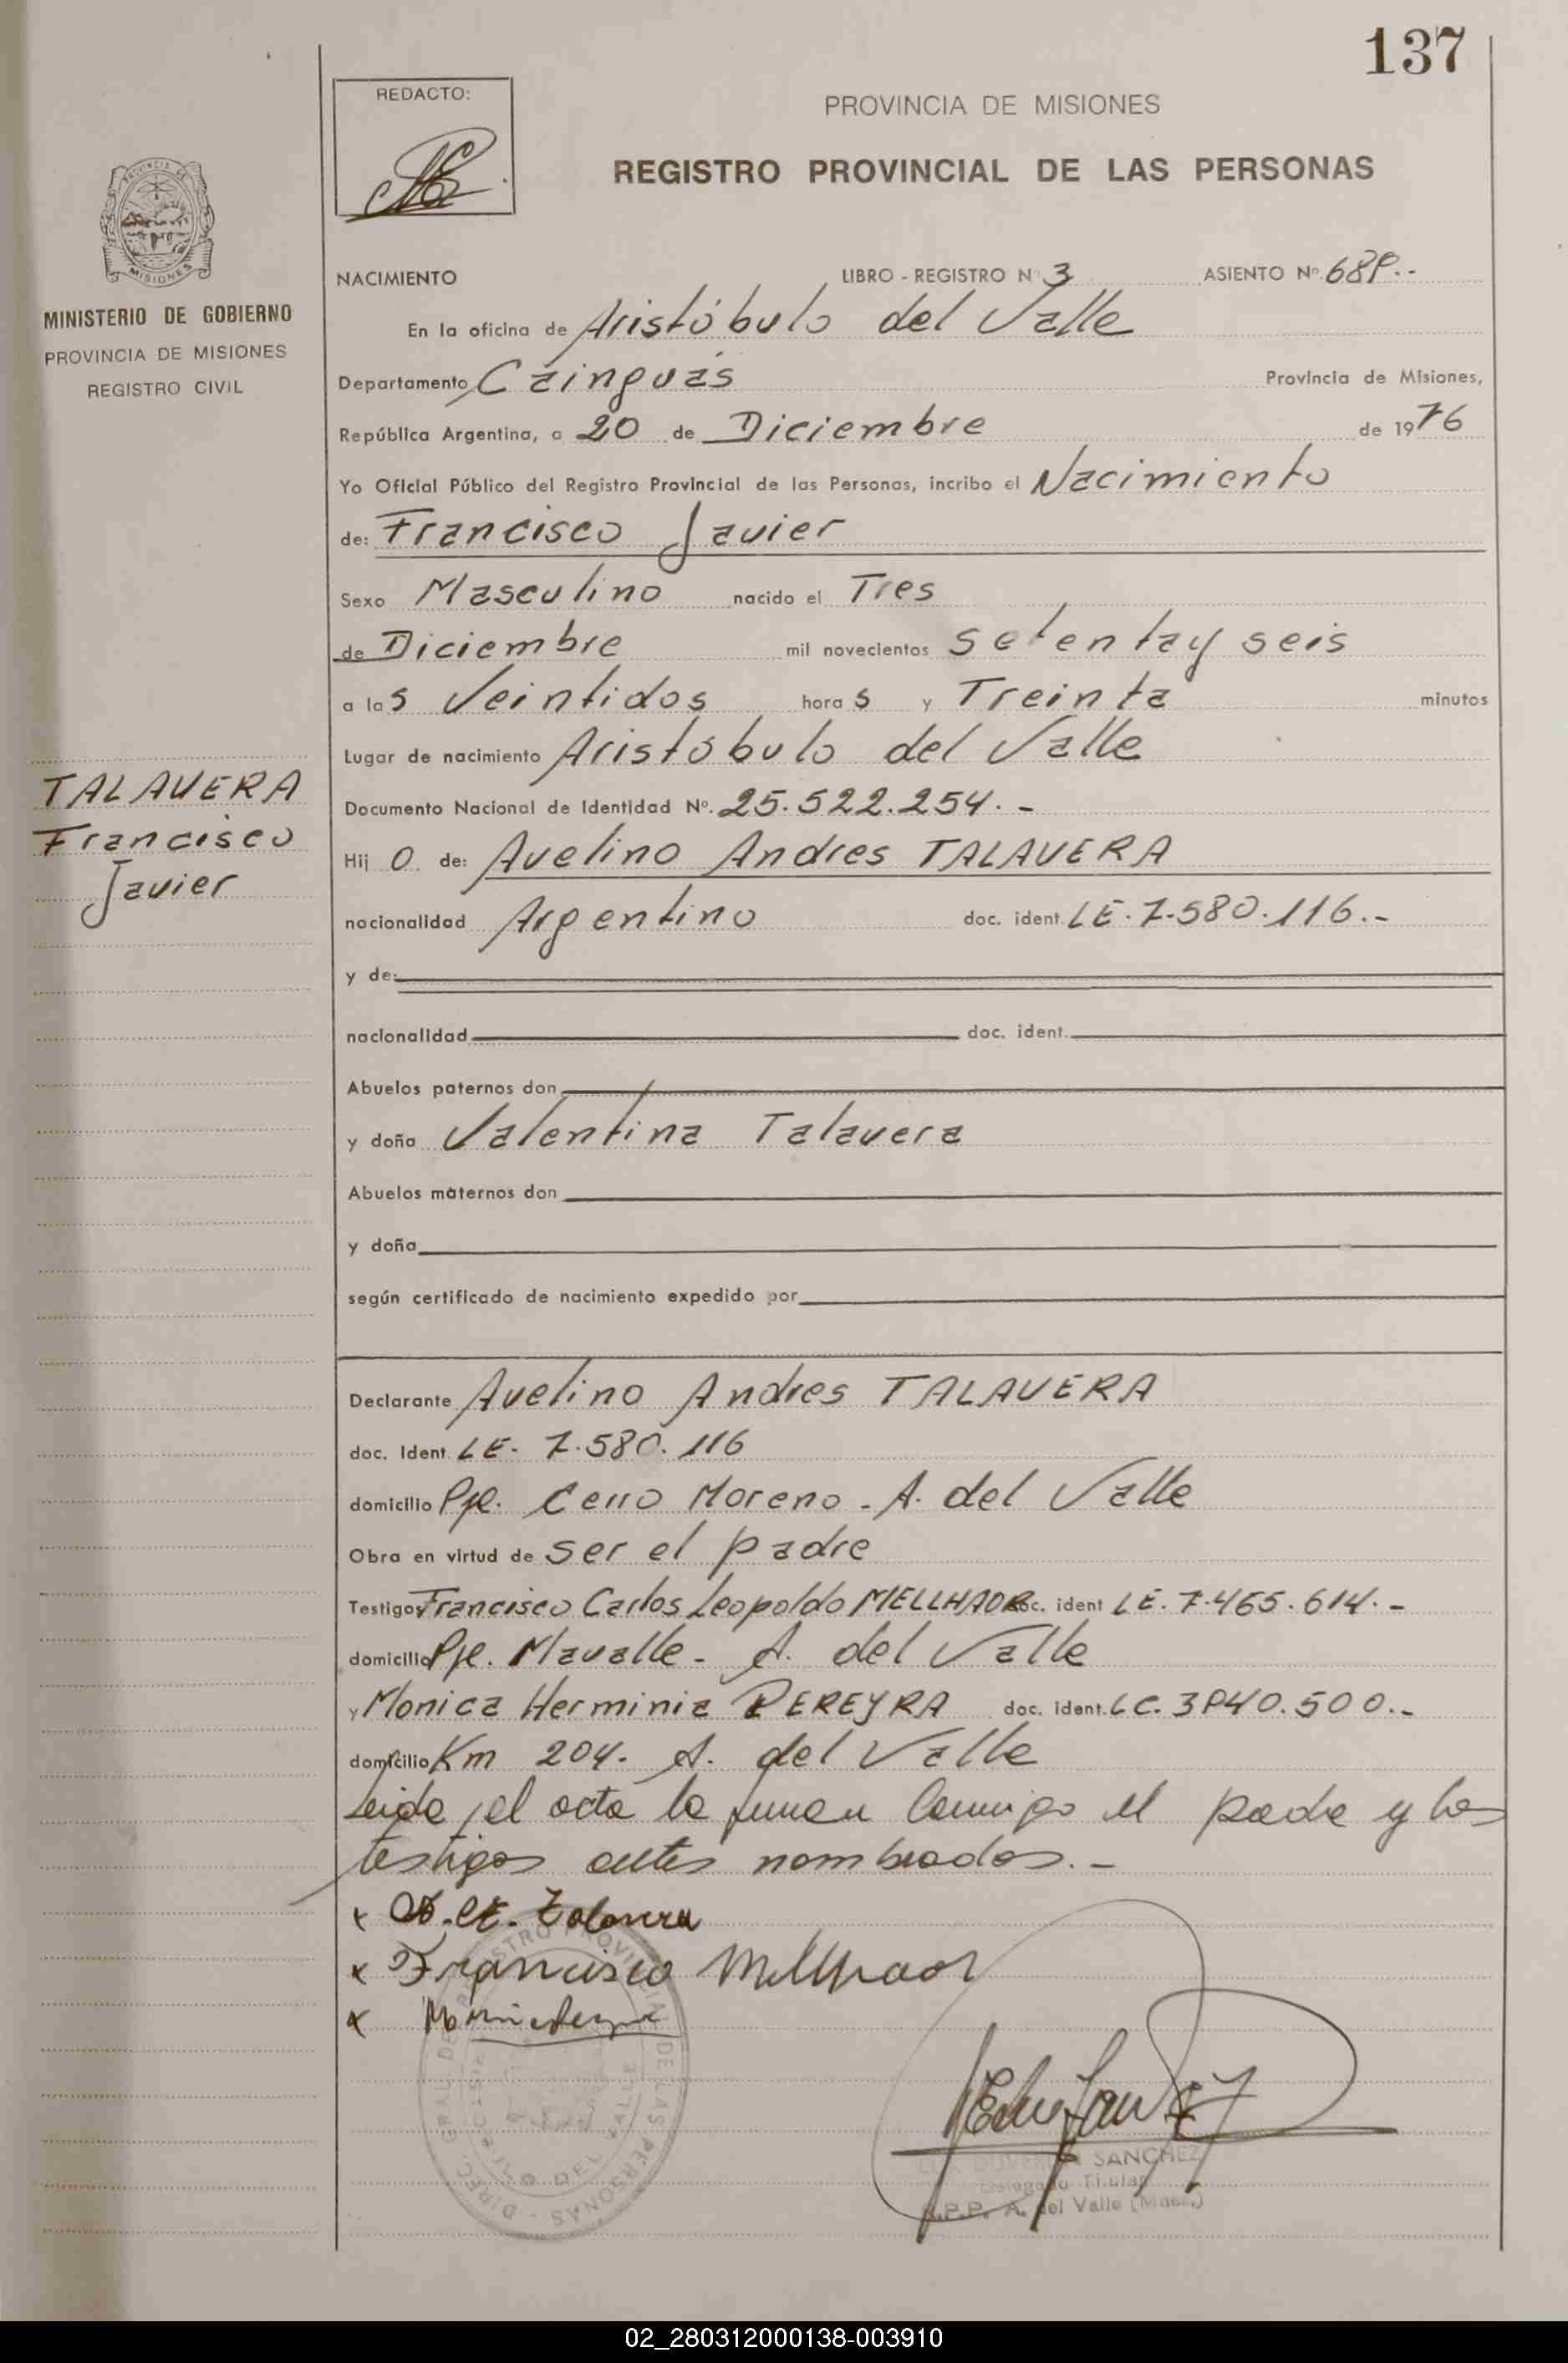 137
REDACTO:
PROVINCIA DE MISIONES
REGISTRO PROVINCIAL DE LAS PERSONAS
MISIONES
MINISTERIO DE GOBIERNO
PROVINCIA DE MISIONES
REGISTRO CIVIL
NACIMIENTO LIBRO - REGISTRO Nº 3 ASIENTO Nº
En la oficina de Aristóbulo del Valle
Departamento Cainguás Provincia de Misiones,
República Argentina, a 20 de Diciembre de 1976
Yo Oficial Público del Registro Provincial de las Personas, incribo el Nacimiento
de: Francisco Javier
Sexo Masculino nacido el Tres
de Diciembre mil novecientos setenta y seis
a las Veintidos horas y Treinta minutos
Lugar de nacimiento Aristóbulo del Valle
TALAVERA
Francisco
Javier
Documento Nacional de Identidad Nº. 25.522.254.-
Hijo de: Avelino Andres TALAVERA
nacionalidad Argentino doc. ident. LE. 7.580.116.-
y de:
nacionalidad doc. ident.
Abuelos paternos don
y doña Valentina Talavera
Abuelos maternos don
y doña
según certificado de nacimiento expedido por
Declarante Avelino Andres TALAVERA
doc. Ident LE. 7.580.116
domicilio Pje. Cerro Moreno - A. del Valle
Obra en virtud de ser el padre
Testigos Francisco Carlos Leopoldo MELLHAOR doc. ident LE. 7.465.614.-
domicilio Pje. Mavalle - A. del Valle
y Monica Herminia PEREYRA doc. ident. LC. 3940.500.-
domicilio Km 204. A. del Valle
Leida el acta la firman conmigo el padre y los
testigos antes nombrados.-
x A. A. Talavera
x Francisco Mellhaor
x
REGISTRO PROVINCIAL DE LAS PERSONAS - DIREC. GRAL. DEL
DEL VALLE
SANCHEZ
Delegado Titular
R.P.P. A. del Valle (Mnes.)
02_280312000138-003910